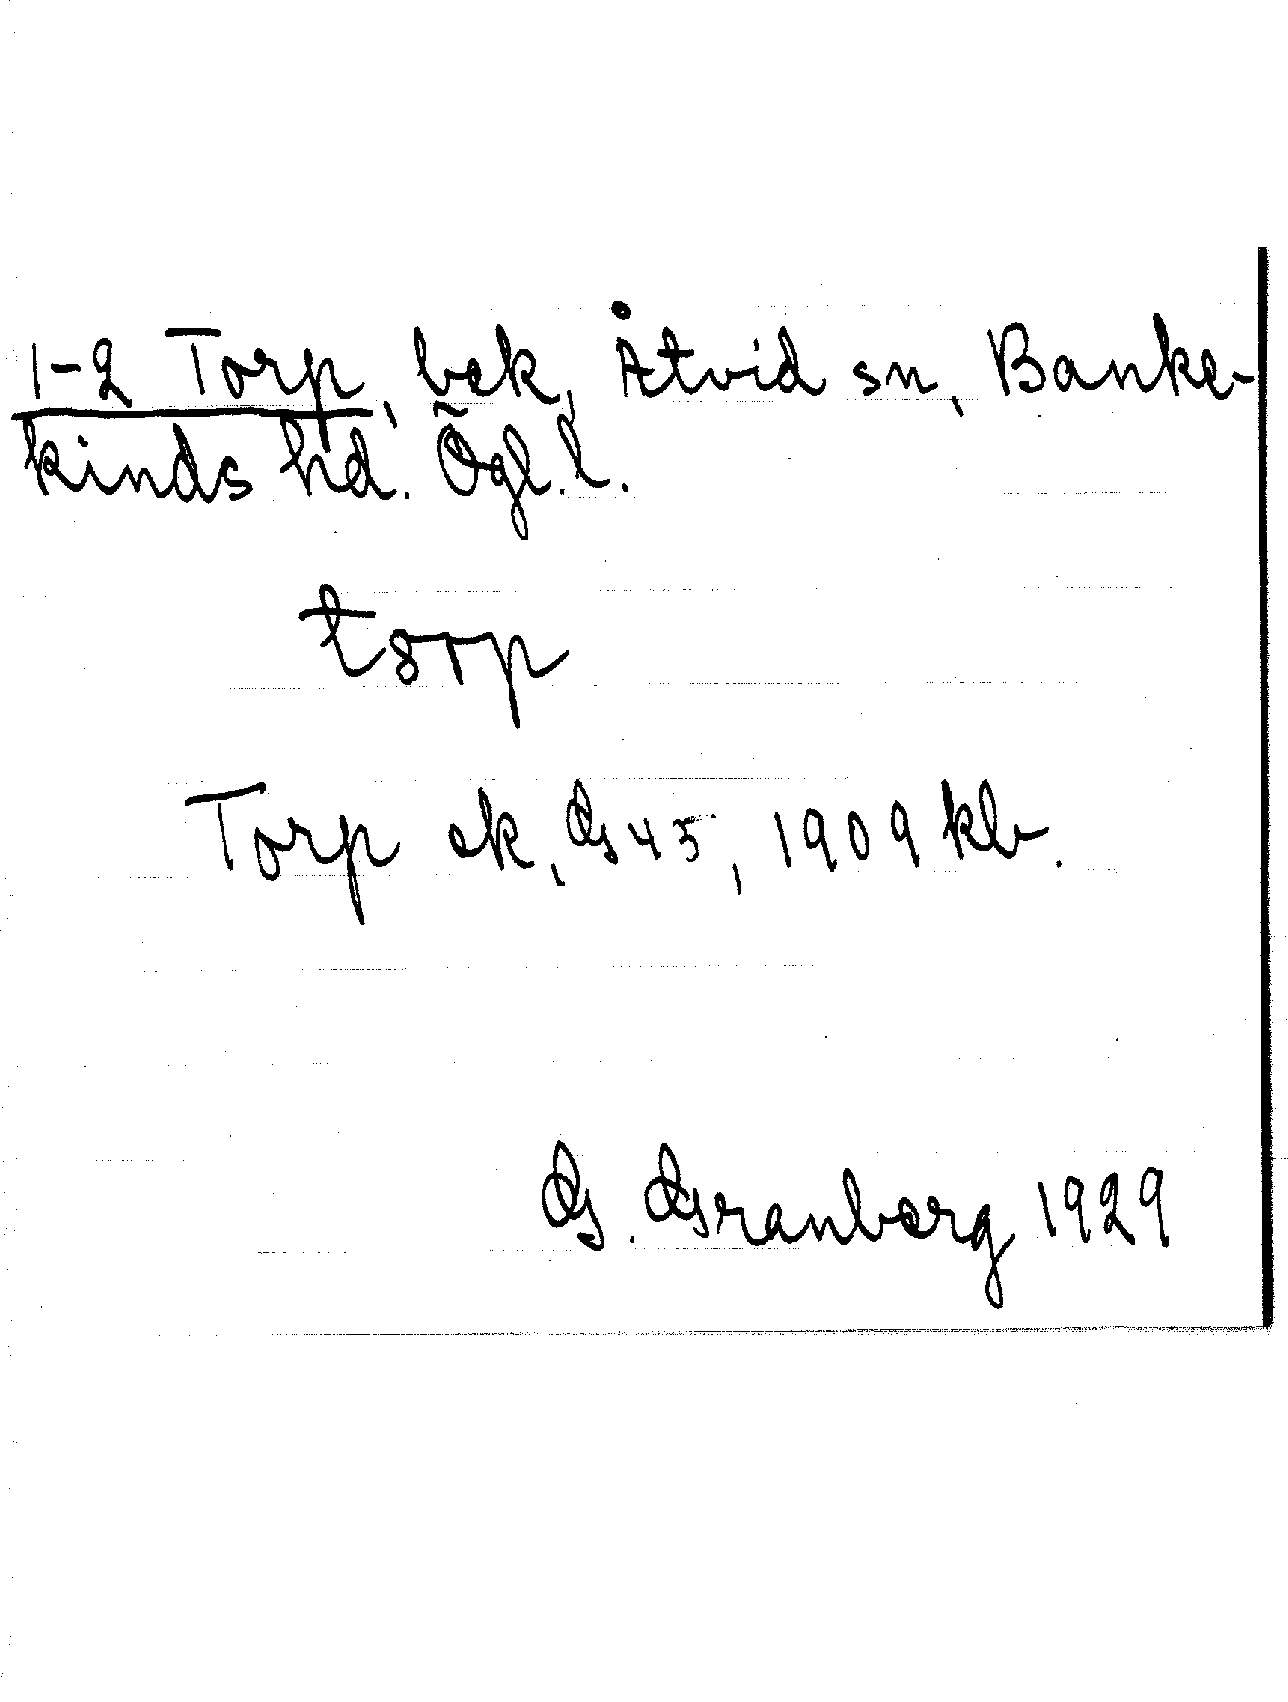 1-2 Torp, bek, Åtvid sn, Banke-
kinds hd. Ögl. l.
torp
Torp ek, G 45, 1909 kb.
G. Granberg 1929